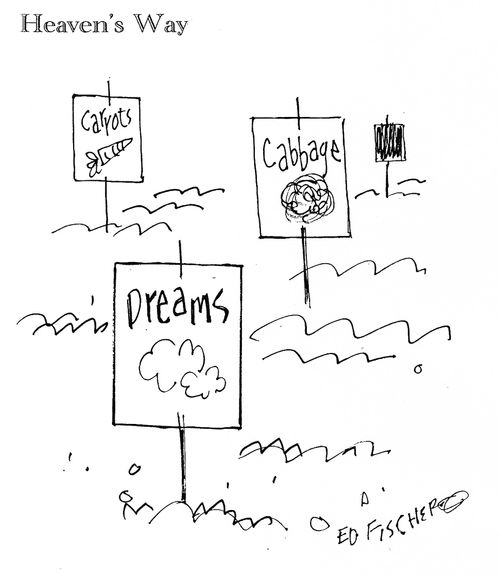 Heaven's Way
Carrots
Cabbage
Dreams
ED FISCHER